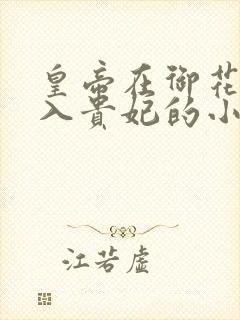 皇帝在御花
入贵妃的小
江若虚